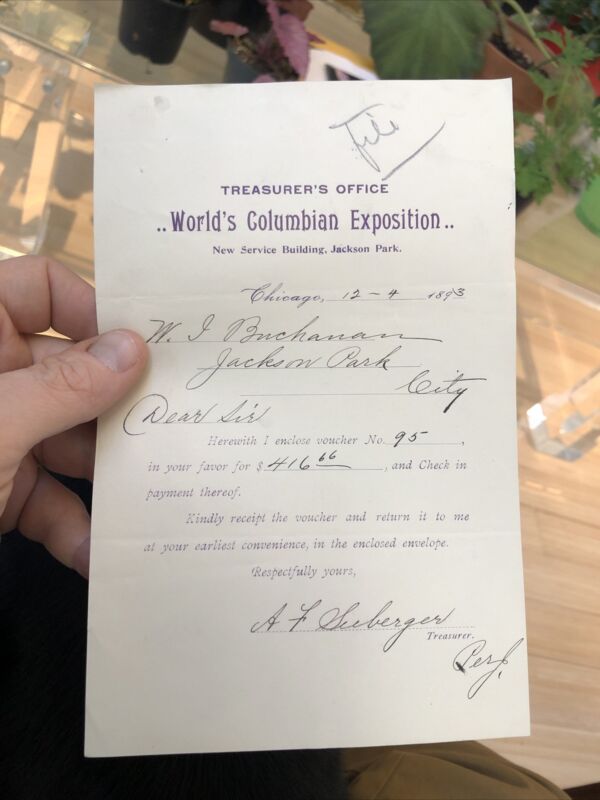 File
TREASURER'S OFFICE
..World's Columbian Exposition..
New Service Building, Jackson Park.
Chicago, 12-4 1893
W. I Buchanan
Jackson Park
City
Dear Sir
Herewith I enclose voucher No. 95,
in your favor for $416 66, and Check in
payment thereof.
Kindly receipt the voucher and return it to me
at your earliest convenience, in the enclosed envelope.
Respectfully yours,
A F Seeberger
Treasurer.
Per J.